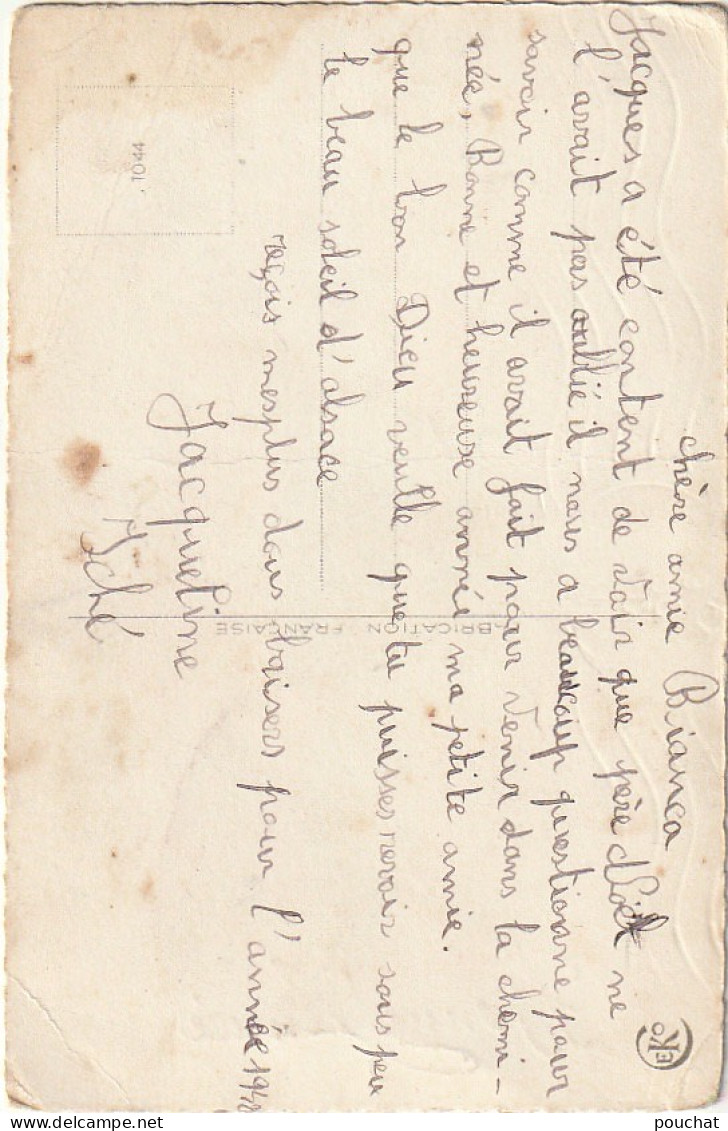 chère amie Bianca
Jacques a été content de voir que père Noël ne
l'avait pas oublié il nous a beaucoup questionne pour
savoir comme il avait fait pour venir dans la chemi-
née, Bonne et heureuse année ma petite amie.
que le bon Dieu veulle que tu puisses revoir sous peu
le beau soleil d'alsace
reçois mes plus doux baisers pour l'année 194
Jacqueline
Iché
FABRICATION FRANÇAISE
1044
EKO
pouchat